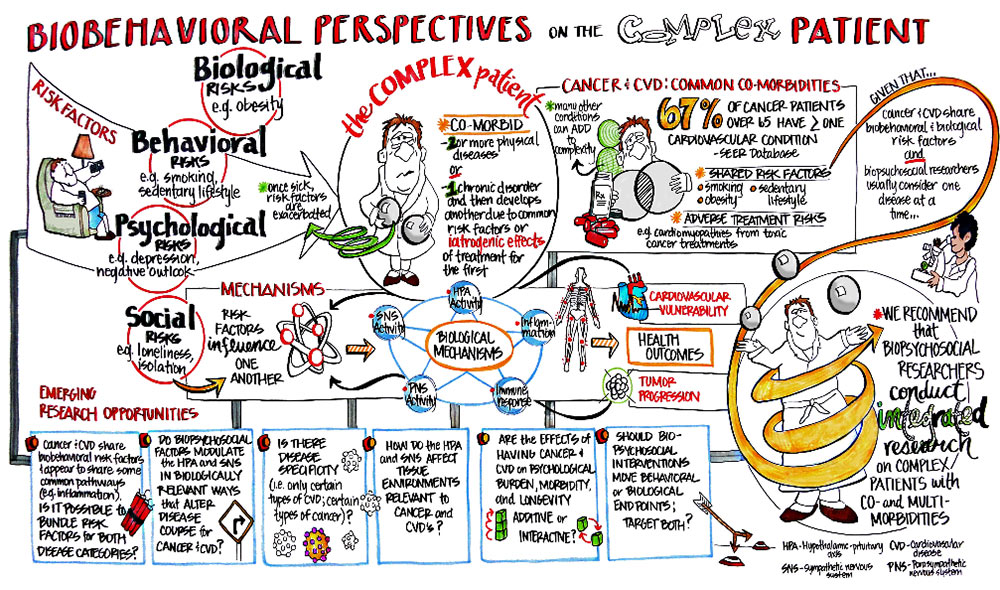 BIOBEHAVIORAL PERSPECTIVES ON THE COMPLEX PATIENT
RISK FACTORS
Biological
RISKS
e.g. obesity
Behavioral
RISKS
e.g. smoking,
sedentary lifestyle
Psychological
RISKS
e.g. depression,
negative outlook
Social
RISKS
e.g. loneliness,
isolation
*once sick,
risk factors
are
exacerbated
the COMPLEX patient
*CO-MORBID
-2 or more physical
diseases
or
-1 chronic disorder
and then develops
another due to common
risk factors or
iatrogenic effects
of treatment for
the first
CANCER & CVD: COMMON CO-MORBIDITIES
*many other
conditions
can ADD
to
complexity
67% OF CANCER PATIENTS
OVER 65 HAVE ≥ ONE
CARDIOVASCULAR CONDITION
- SEER Database
Rx
*SHARED RISK FACTORS
• smoking • sedentary
• obesity lifestyle
*ADVERSE TREATMENT RISKS
e.g. cardiomyopathies from toxic
cancer treatments
GIVEN THAT...
cancer & CVD share
biobehavioral & biological
risk factors
and
biopsychosocial researchers
usually consider one
disease at a
time...
MECHANISMS
RISK
FACTORS
influence
ONE
ANOTHER
HPA
Activity
SNS
Activity
Inflam-
mation
BIOLOGICAL
MECHANISMS
PNS
Activity
Immune
response
CARDIOVASCULAR
VULNERABILITY
HEALTH
OUTCOMES
TUMOR
PROGRESSION
*WE RECOMMEND
that
BIOPSYCHOSOCIAL
RESEARCHERS
conduct
integrated
research
ON COMPLEX
PATIENTS with
CO- and MULTI-
MORBIDITIES
EMERGING
RESEARCH OPPORTUNITIES
Cancer & CVD share
biobehavioral risk factors
& appear to share some
common pathways
(e.g. inflammation).
IS IT POSSIBLE to
BUNDLE RISK
FACTORS FOR BOTH
DISEASE CATEGORIES?
DO BIOPSYCHOSOCIAL
FACTORS MODULATE
the HPA and SNS
IN BIOLOGICALLY
RELEVANT WAYS
that ALTER
DISEASE
COURSE for
CANCER & CVD?
IS THERE
DISEASE
SPECIFICITY
(i.e. only certain
types of CVD; certain
types of cancer)?
HOW DO the HPA
and SNS AFFECT
TISSUE
ENVIRONMENTS
RELEVANT to
CANCER and
CVD's?
ARE the EFFECTS of
HAVING CANCER &
CVD ON PSYCHOLOGICAL
BURDEN, MORBIDITY,
and LONGEVITY
ADDITIVE or
INTERACTIVE?
SHOULD BIO-
PSYCHOSOCIAL
INTERVENTIONS
MOVE BEHAVIORAL
or BIOLOGICAL
END POINTS;
TARGET BOTH?
HPA - Hypothalamic-pituitary
axis
SNS - Sympathetic nervous
system
CVD - Cardiovascular
disease
PNS - Parasympathetic
nervous system